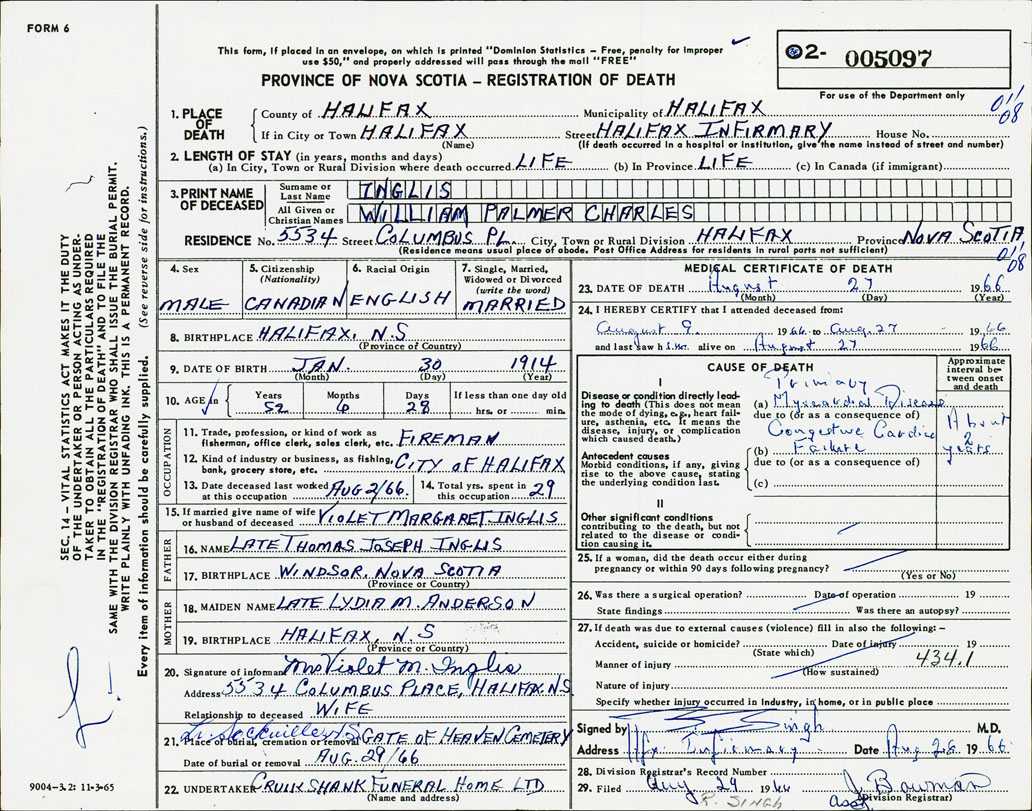 FORM 6
This form, if placed in an envelope, on which is printed "Dominion Statistics – Free, penalty for improper
use $50," and properly addressed will pass through the mail "FREE"
2- 005097
For use of the Department only
PROVINCE OF NOVA SCOTIA – REGISTRATION OF DEATH
011/08
1. PLACE OF DEATH
County of HALIFAX Municipality of HALIFAX
If in City or Town HALIFAX Street HALIFAX INFIRMARY House No.
(Name) (If death occurred in a hospital or institution, give the name instead of street and number)
2. LENGTH OF STAY (in years, months and days)
(a) In City, Town or Rural Division where death occurred LIFE (b) In Province LIFE (c) In Canada (if immigrant)
3. PRINT NAME OF DECEASED
Surname or Last Name INGLIS
All Given or Christian Names WILLIAM PALMER CHARLES
RESIDENCE No. 5534 Street COLUMBUS PL. City, Town or Rural Division HALIFAX Province NOVA SCOTIA
(Residence means usual place of abode. Post Office Address for residents in rural parts not sufficient)
011/08
4. Sex MALE
5. Citizenship (Nationality) CANADIAN
6. Racial Origin ENGLISH
7. Single, Married, Widowed or Divorced (write the word) MARRIED
8. BIRTHPLACE HALIFAX, N.S
(Province or Country)
9. DATE OF BIRTH JAN. 30 1914
(Month) (Day) (Year)
10. AGE in Years 52 Months 6 Days 28 If less than one day old hrs. or min.
OCCUPATION
11. Trade, profession, or kind of work as
fisherman, office clerk, sales clerk, etc. FIREMAN
12. Kind of industry or business, as fishing,
bank, grocery store, etc. CITY OF HALIFAX
13. Date deceased last worked at this occupation AUG 2/66. 14. Total yrs. spent in this occupation 29
15. If married give name of wife
or husband of deceased VIOLET MARGARET INGLIS
FATHER
16. NAME LATE THOMAS JOSEPH INGLIS
17. BIRTHPLACE WINDSOR, NOVA SCOTIA
(Province or Country)
MOTHER
18. MAIDEN NAME LATE LYDIA M. ANDERSON
19. BIRTHPLACE HALIFAX, N.S
(Province or Country)
20. Signature of informant Mrs Violet M. Inglis
Address 5534 COLUMBUS PLACE, HALIFAX NS
Relationship to deceased WIFE
21. Place of burial, cremation or removal GATE OF HEAVEN CEMETERY
Date of burial or removal AUG. 29/66
22. UNDERTAKER CRUIKSHANK FUNERAL HOME LTD
(Name and address)
MEDICAL CERTIFICATE OF DEATH
23. DATE OF DEATH August 27 1966
(Month) (Day) (Year)
24. I HEREBY CERTIFY that I attended deceased from:
August 9 1966 to Aug. 27 1966
and last saw him alive on August 27 1966
CAUSE OF DEATH
Approximate interval between onset and death
I
Disease or condition directly leading to death (This does not mean the mode of dying, e.g., heart failure, asthenia, etc. It means the disease, injury, or complication which caused death.)
Primary
(a) Myocardial Disease
due to (or as a consequence of)
Congestive Cardiac
(b) Failure
due to (or as a consequence of)
(c)
About 2 years
Antecedent causes
Morbid conditions, if any, giving
rise to the above cause, stating
the underlying condition last.
II
Other significant conditions
contributing to the death, but not
related to the disease or condi-
tion causing it.
25. If a woman, did the death occur either during
pregnancy or within 90 days following pregnancy?
(Yes or No)
26. Was there a surgical operation? Date of operation 19
State findings Was there an autopsy?
27. If death was due to external causes (violence) fill in also the following: –
Accident, suicide or homicide? Date of injury 19
(State which)
Manner of injury 434.1
(How sustained)
Nature of injury
Specify whether injury occurred in Industry, in home, or in public place
Signed by Singh M.D.
Address Hfx Infirmary Date Aug 28 1966
28. Division Registrar's Record Number
29. Filed Aug 29 1966 J. Bowman
R. SINGH Asst Division Registrar
SEC. 14 – VITAL STATISTICS ACT MAKES IT THE DUTY
OF THE UNDERTAKER OR PERSON ACTING AS UNDER-
TAKER TO OBTAIN ALL THE PARTICULARS REQUIRED
IN THE "REGISTRATION OF DEATH" AND TO FILE THE
SAME WITH THE DIVISION REGISTRAR WHO SHALL ISSUE THE BURIAL PERMIT.
WRITE PLAINLY WITH UNFADING INK. THIS IS A PERMANENT RECORD.
Every item of information should be carefully supplied. (See reverse side for instructions.)
9004-3.2: 11-3-65